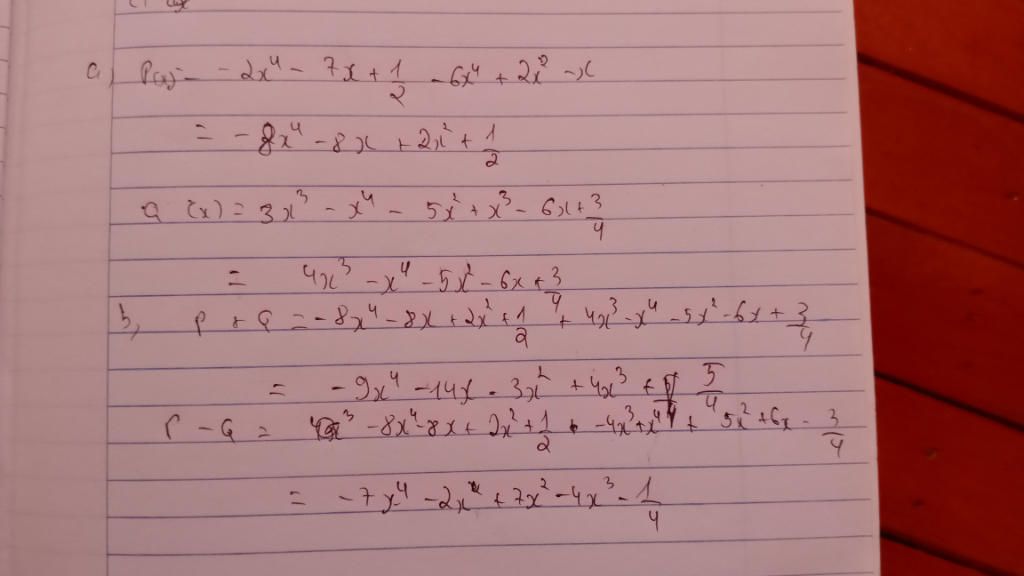 a, P(x) = -2x⁴ - 7x + 1/2 - 6x⁴ + 2x² - x
= -8x⁴ - 8x + 2x² + 1/2
Q (x) = 3x³ - x⁴ - 5x² + x³ - 6x + 3/4
= 4x³ - x⁴ - 5x² - 6x + 3/4
b, P + Q = -8x⁴ - 8x + 2x² + 1/2 + 4x³ - x⁴ - 5x² - 6x + 3/4
= -9x⁴ - 14x - 3x² + 4x³ + 5/4
P - Q = -8x⁴ - 8x + 2x² + 1/2 - 4x³ + x⁴ + 5x² + 6x - 3/4
= -7x⁴ - 2x + 7x² - 4x³ - 1/4